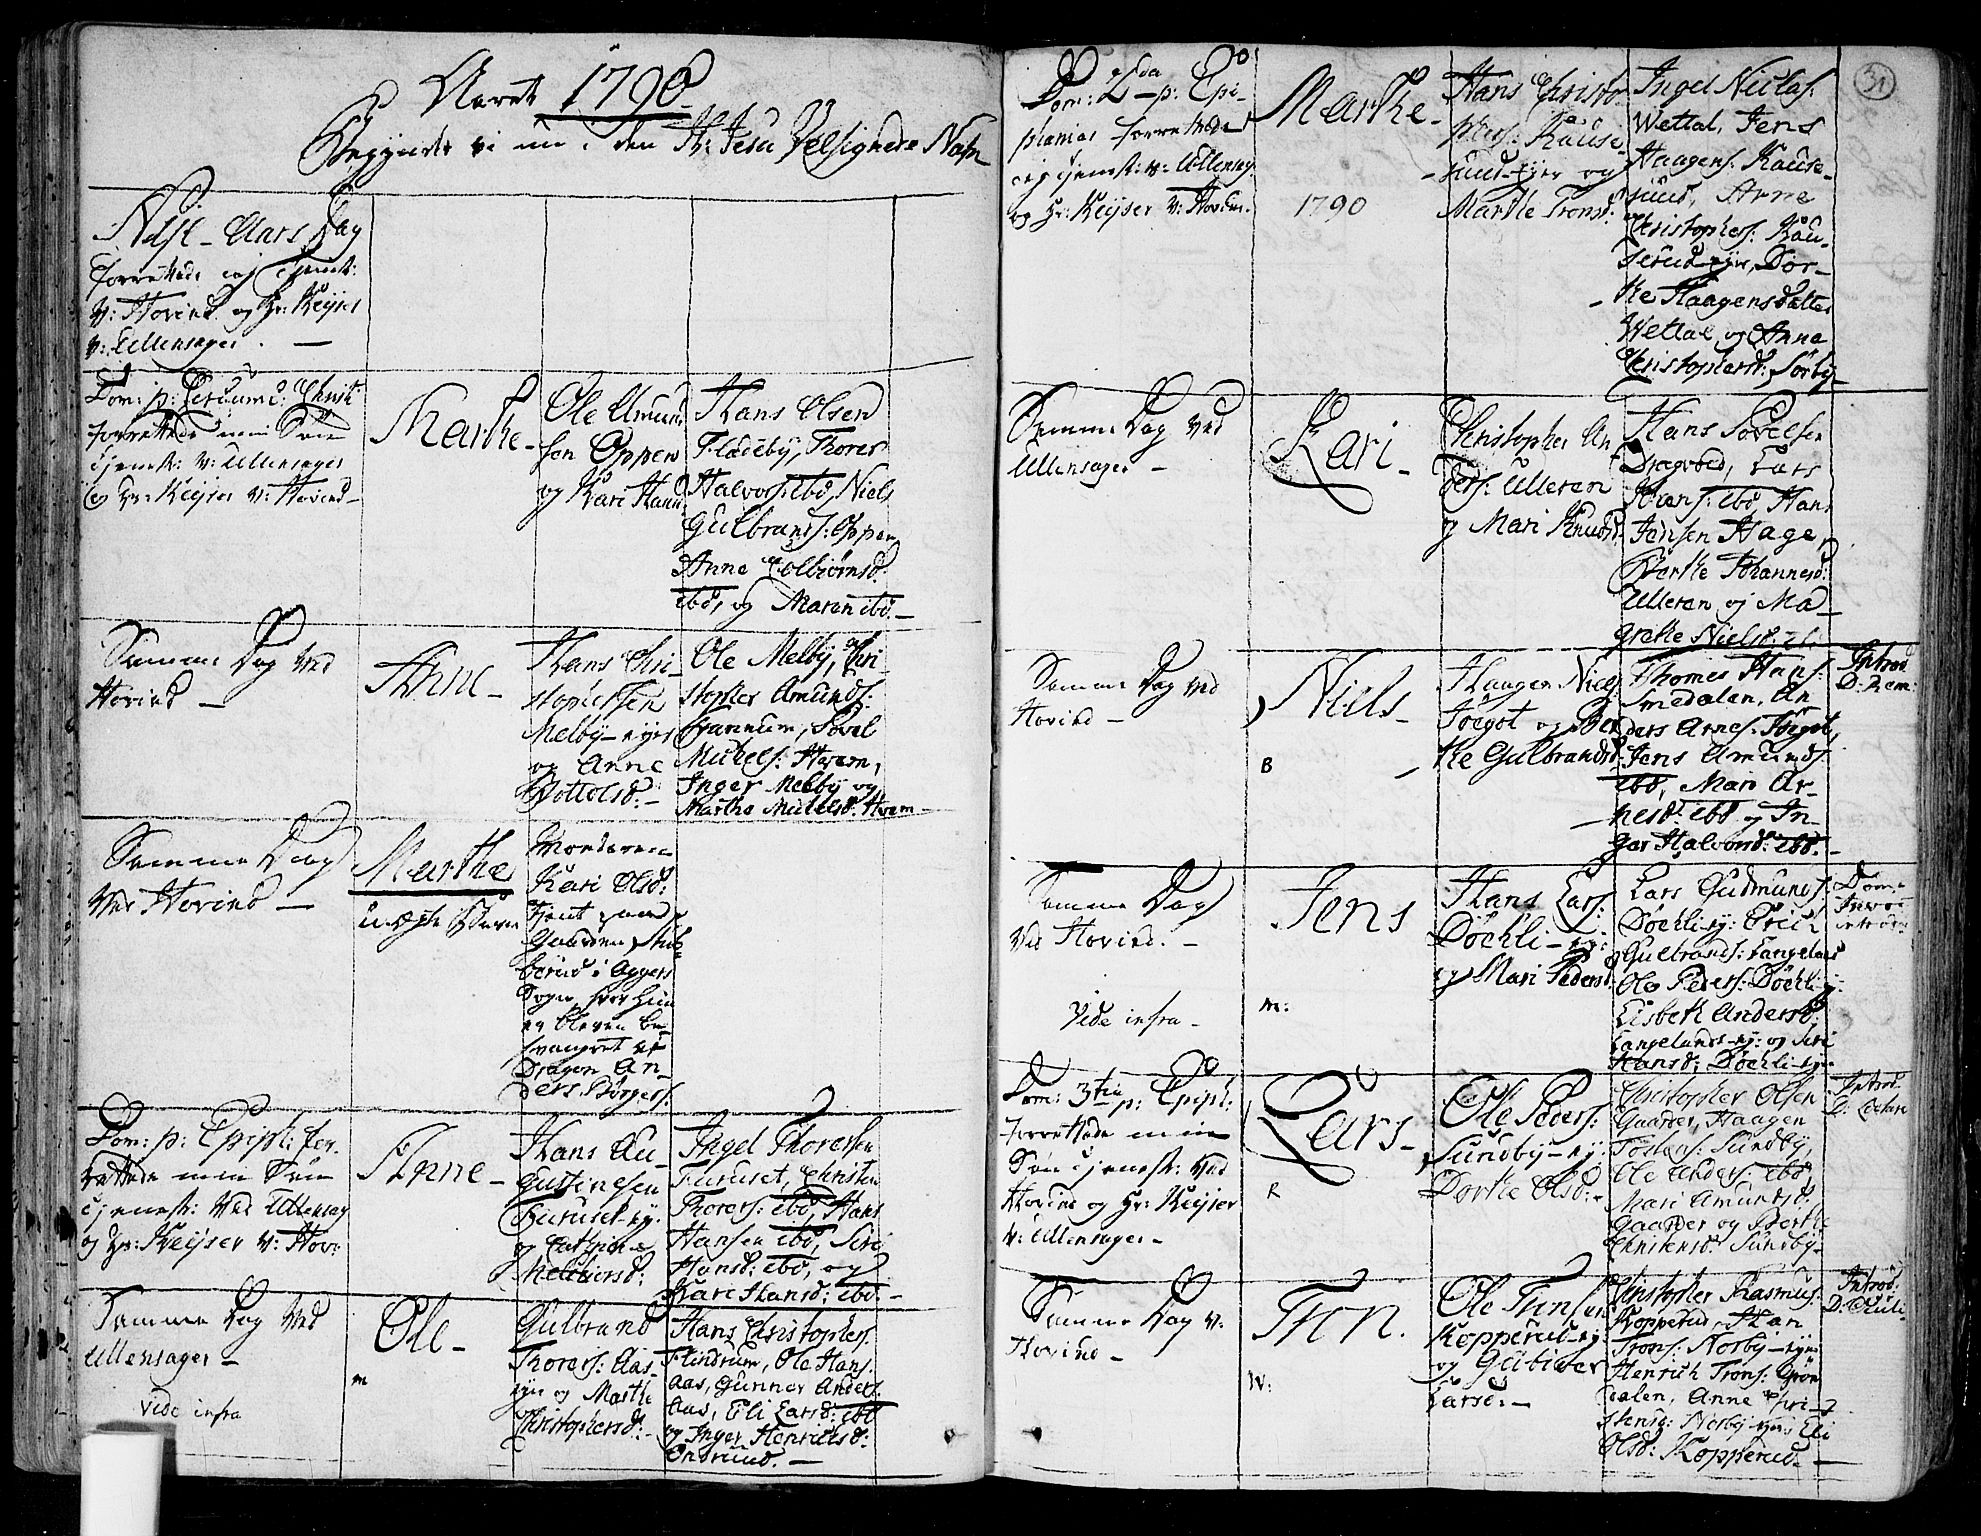 Aaret 1790
Begynde vi nu i den H: Jesu Velsignede Nafn
Nyt-Aars Dag
forrettede jeg tjenest:
v: Hovind og Hr: Keyser
v: Ullensager. —
Dom: p: Circumc: Christi
forrettede min Søn
tjenest: v: Ullensager
og Hr: Keyser v: Hovind —
Marthe-
Ole Amund
sen Oppen
og Kari Hans
Hans Olsen
Fladebÿ, Thores
Halvors: ibd, Niels
Gulbrands: Oppen
Anne Colbiørnsd:
ibd, og Maren ibd. —
Samme Dag ved
Hovind —
Anne-
Hans Chri-
stophersen
Melbÿ-eyer
og Anne
Bottolsd: —
Ole Melbÿ, Chri-
stopher Amunds:
Sovel
Mickels: Hvem,
Inger Melbÿ og
Marthe Mickelsd: Hvem —
Samme Dag
ved Hovind —
Marthe
uægte
Moderen
Kari Olsd:
tjent paa
Gaarden
i Aggers
Sogn, hvor hun
er bleven be-
svangret af
Dragon An-
ders Børgers:
Dom: p: Epiph: for-
rettede min Søn
tjenest: ved Ullensag
og Hr: Keyser v: Hov:
Anne-
Hans Au-
gustinesen
Furuset-ey:
og Cathrine
Melchiorsd:
Ingel Thoresen
Furuset, Christen
Thores: ibd, Hans
Hansen ibd, Siri
Hansd: ibd, og
Kari Hansd: ibd. —
Samme Dag ved
Ullensager —
Vide infra
Ole-
m
Gulbrand
Thores: Aas-
eyer og Marthe
Christophersd: —
Hans Christophers:
Flindrum, Ole Hans:
Aas, Gunner Anders:
Aas, Eli Larsd: ibd
og Inger Henricksd:
Onsrud. —
31
Dom: 2da p: Epi-
phanias forrettede
jeg tjenest: v: Ullensag:
og Hr: Keyser v: Hovin.
Marthe-
1790
Hans Christo-
phers: Kause-
ruud-eyer og
Marthe Tronsd:
Ingel Niclas:
Wettal, Jens
Haagens: Kause-
ruud, Arne
Christophers: Kau-
serud-eyer, Dor-
the Haagensdatter
Wettal og Anne
Christophersd: Sørby-
Samme Dag ved
Ullensager —
Kari-
Christopher An
ders: Ulleren
og Mari Knudsd:
Hans Sovelsen
Dragvold, Lars
Hans: ibd, Hans
Jensen Hage,
Berthe Johannesd:
Ulleren og Ma-
grethe Nielsd:
Samme Dag ved
Hovind —
Niels-
B
Haagen Niels
Joegot og Ber
the Gulbrandsd:
Thomes Hans:
Smedalen, An
ders Arnes: Joegot,
Jens Amunds:
ibd, Mari Ar-
nesd: ibd og In-
ger Halvorsd: ibd. —
Introd
D: Rem:
Samme Dag
ved Hovind. —
Vide infra-
Jens
m:
Hans Lars:
Døchli-ey:
og Mari Pedersd:
Lars Gudmunds:
Døchli-ey: Erich
Gulbrands: Langeland
Ole Peders: Døchli-ey:
Lisbeth Andersd:
Langelands-ey: og Siri
Hansd: Døchli-eye
Dom:
Dom: 3tia p: Epiph:
forrettede min
Søn tjenest: ved
Hovind og Hr: Keyser
v: Ullensager-
Lars-
R
Ole Peders:
Sundbÿ-ey:
Dorthe Olsd: -
Christopher Olsen
Gaarder, Haagen
Tostens: Sundby,
Ole Anders: ibd,
Mari Amundsd:
Gaarder og Berthe
Christensd: Sundby-
Introd.
D: Lætare
Samme Dag v:
Hovind —
Tron.
W:
Ole Tronsen
Kopperud-ey:
og Gubiør
Larsd: —
Christopher Rasmus:
Kopperud, Hans
Trons: Norby-eyer
Henrich Trons: Grøn
dalen, Anne Chri-
stensd: Norby-eyer Eli
Olsd: Kopperud. —
Introd.